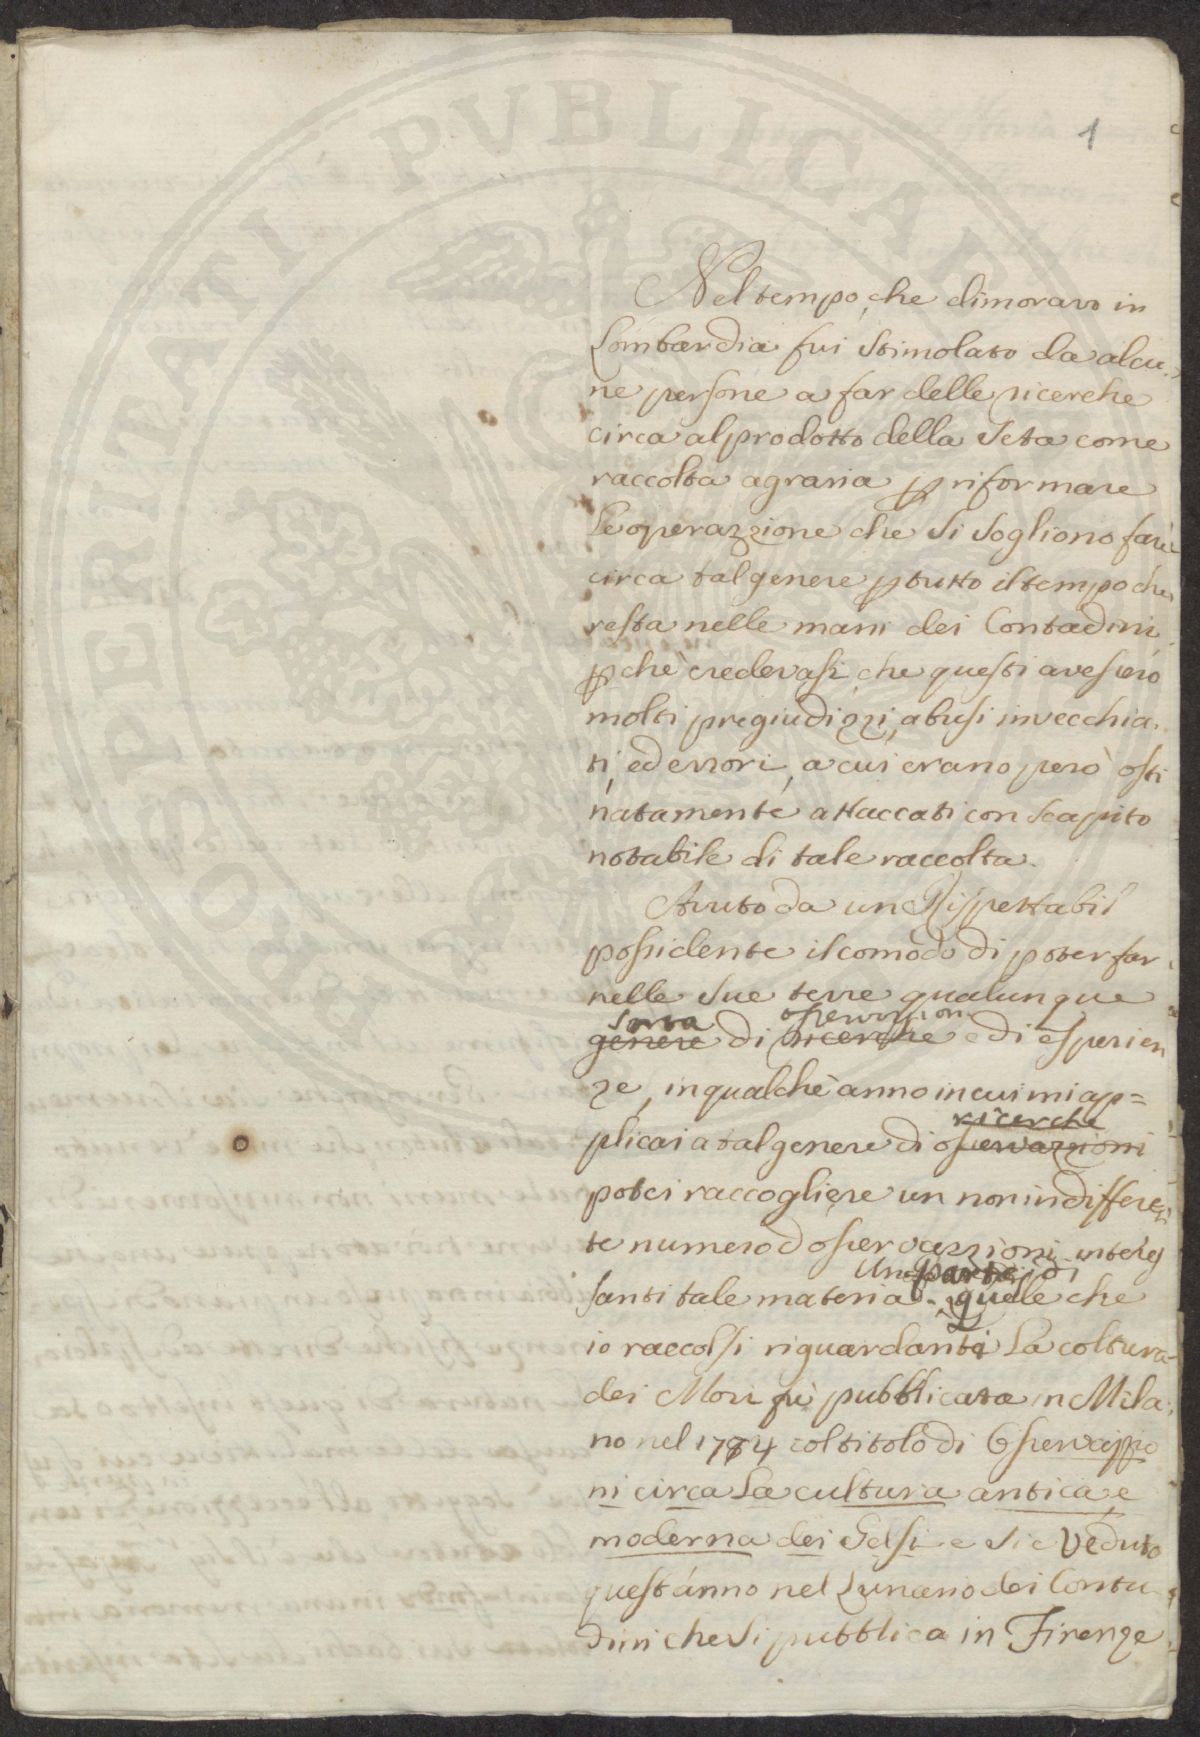 1
Nel tempo, che dimoravo in
Lombardia fui stimolato da alcu-
ne persone a far delle ricerche
circa al prodotto della Seta come
raccolta agraria p riformare
Le operazzione che si sogliono fare
circa tal genere p tutto il tempo che
resta nelle mani dei Contadini
pchè credevasi, che questi avessero
molti pregiudizzi, abusi invecchia-
ti, ed errori, a cui erano però osti
natamente attaccati con scapito
notabile di tale raccolta.
Avuto da un Rispettabil
possidente il comodo di poter far
nelle sue terre qualunque
sorta osservazion
genere di ricerche e di esperien
ze, in qualche anno in cui mi ap=
ricerche
plicai a tal genere di osservazzioni
potei raccogliere un non indifferen
te numero d osservazzioni interes
Una parte di
santi tale materia. quelle che
io raccolsi riguardanti La coltura
dei Mori fù pubblicata in Mila-
no nel 1784 col titolo di Osservazzio
ni circa La cultura antica, e
moderna dei Gelsi e si è veduto
quest'anno nel Lunario dei Conta-
dini che si pubblica in Firenze
PROSPERITATI PUBLICAE